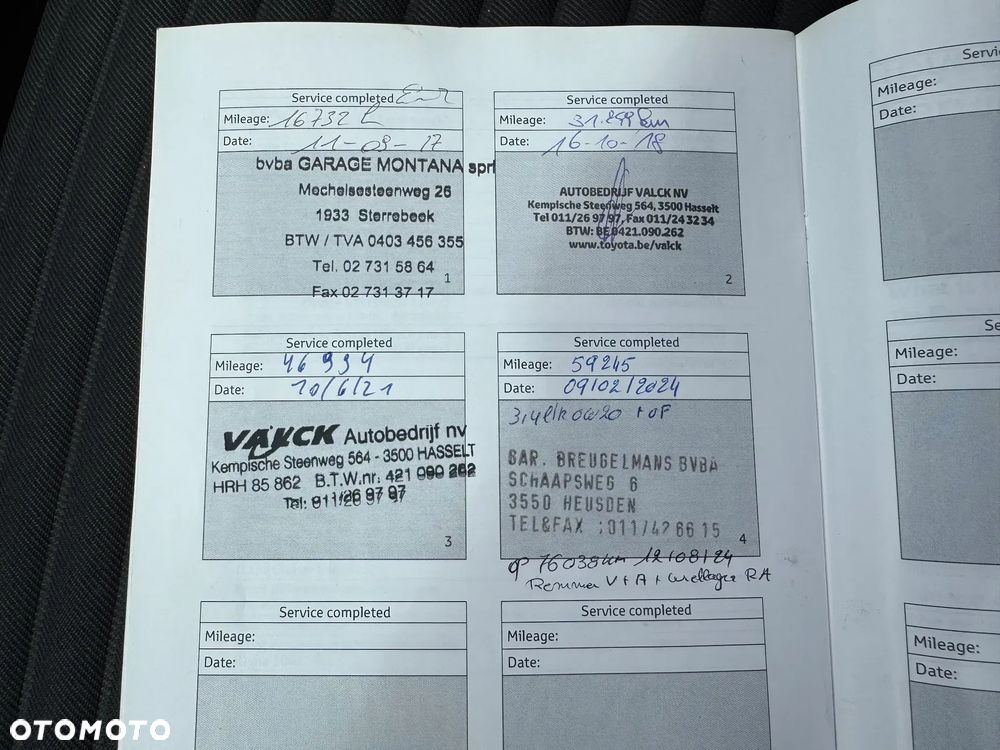 Service completed
Mileage: 16732
Date: 11-09-17
bvba GARAGE MONTANA sprl
Mechelsesteenweg 26
1933 Sterrebeek
BTW / TVA 0403 456 355
Tel. 02 731 58 64
Fax 02 731 37 17
1
Service completed
Mileage: 31.299 km
Date: 16-10-18
AUTOBEDRIJF VALCK NV
Kempische Steenweg 564, 3500 Hasselt
Tel 011/26 97 97, Fax 011/24 32 34
BTW: BE 0421.090.262
www.toyota.be/valck
2
Service completed
Mileage: 46994
Date: 10/6/21
VALCK Autobedrijf nv
Kempische Steenweg 564 - 3500 HASSELT
HRH 85 862 B.T.W.nr. 421 090 262
Tel: 011/26 97 97
3
Service completed
Mileage: 59245
Date: 09/02/2024
3,4l 0w20 + OF
GAR. BREUGELMANS BVBA
SCHAAPSWEG 6
3550 HEUSDEN
TEL&FAX :011/42 66 15
4
op 76038km 12/08/24
Remmen V+A + wiellager RA
Service completed
Mileage:
Date:
Service completed
Mileage:
Date:
Servi
Mileage:
Date:
Se
Mileage:
Date:
Mileage:
Date:
OTOMOTO